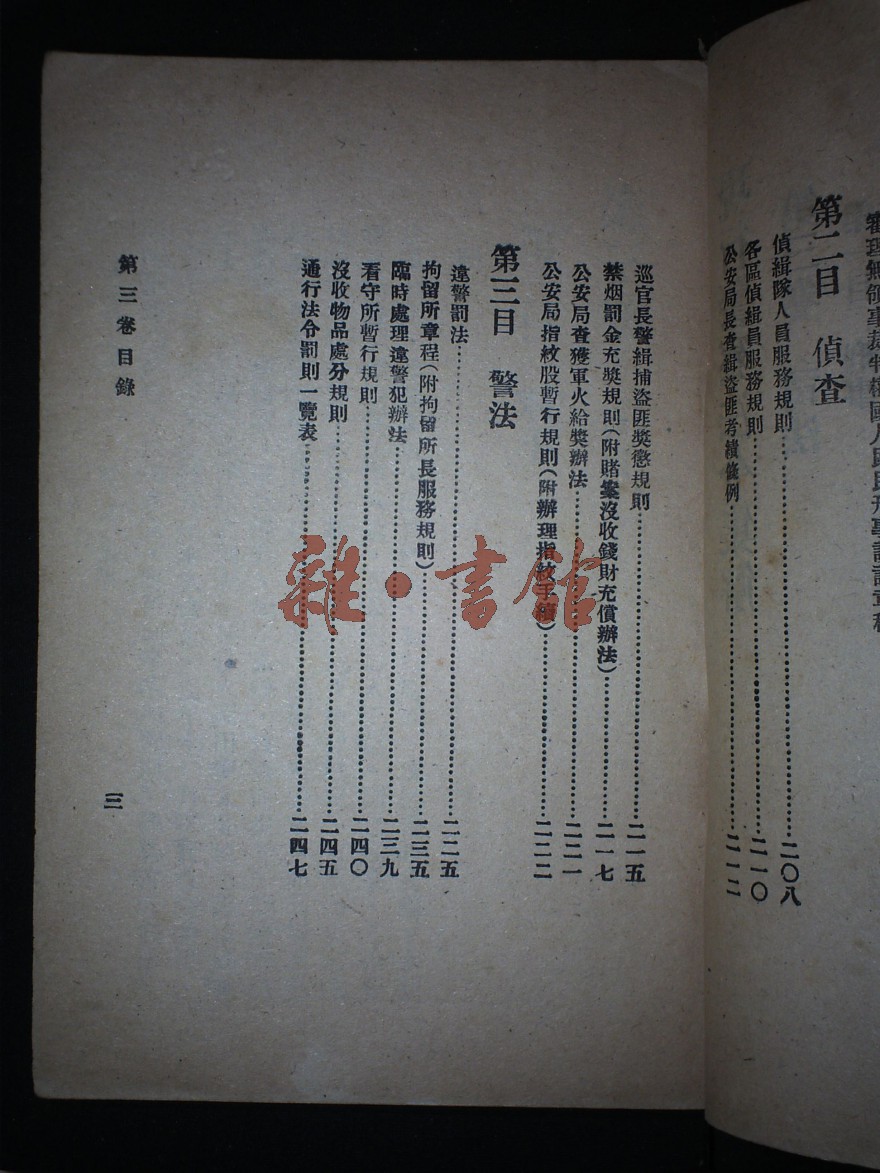 第二目 偵查
偵緝隊人員服務規則……二〇八
各區偵緝員服務規則……二一〇
公安局長查緝盜匪考績條例……二一二
巡官長警緝捕盜匪獎懲規則……二一五
禁烟罰金充獎規則(附賭案沒收錢財充償辦法)……二一七
公安局查獲軍火給獎辦法……二二一
公安局指紋股暫行規則(附辦理指紋手續)……二二二
第三目 警法
違警罰法……二二五
拘留所章程(附拘留所長服務規則)……二三五
臨時處理違警犯辦法……二三九
看守所暫行規則……二四〇
沒收物品處分規則……二四五
通行法令罰則一覽表……二四七
第三卷目錄
三
雜·書館